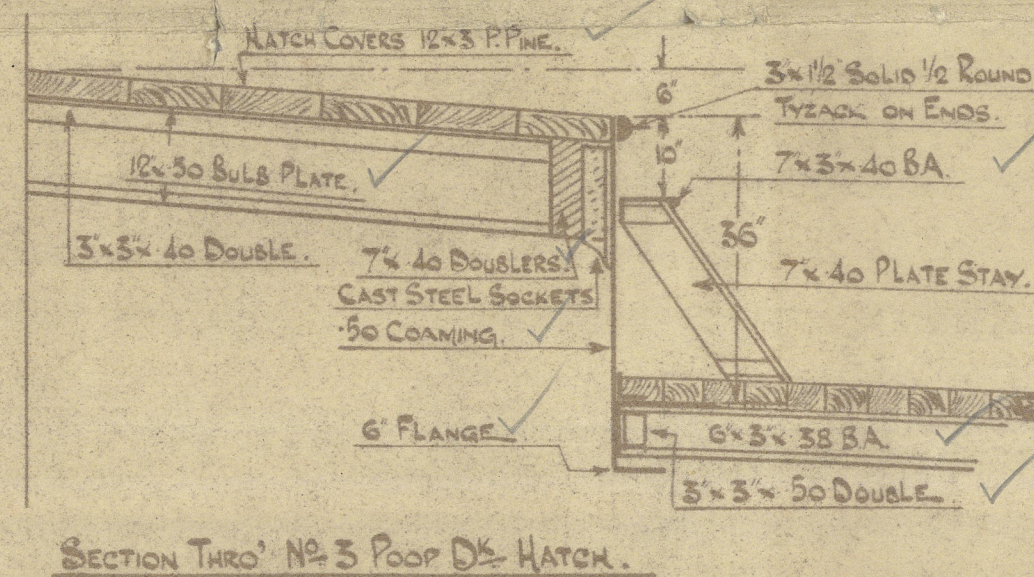 HATCH COVERS 12×3 P. PINE.
6"
3"×1½" SOLID ½ ROUND
TYZACK ON ENDS.
10"
7"×3"×·40 BA.
12×·50 BULB PLATE.
36"
3"×3"×·40 DOUBLE.
7"×·40 DOUBLERS.
7"×·40 PLATE STAY.
CAST STEEL SOCKETS
·50 COAMING.
6" FLANGE
6"×3"×·38 BA.
3"×3"×·50 DOUBLE
SECTION THRO' Nº 3 POOP DK HATCH.